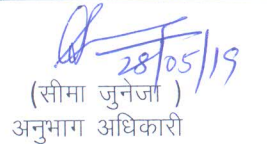 28/05/19
(सीमा जुनेजा )
अनुभाग अधिकारी